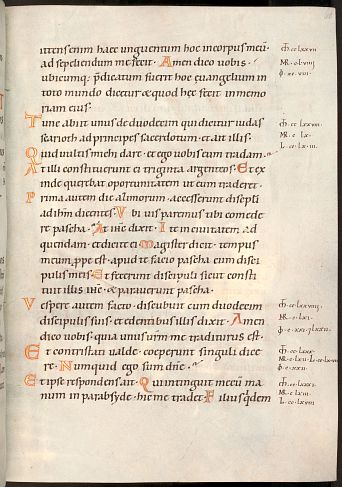 uttens enim haec unguentum hoc in corpus meū·
ad sepeliendum me fecit· Amen dico vobis·
ubicumq; p̄dicatum fuerit hoc euangelium in
toto mundo dicetur & quod hęc fecit in memo
riam eius·
Tunc abiit unus de duodecim qui dicitur iudas
scarioth ad principes sacerdotum· & ait illis·
Quid vultis mihi dare· & ego vobis eum tradam·
At illi constituerunt ei triginta argenteos· Et ex
inde querebat oportunitatem ut eum traderet·
Prima autem die azimorum· accesserunt discipli
ad ihm̄ dicentes· Ubi vis paremus tibi comede
re pascha· At ihc̄ dixit· Ite in civitatem ad
quendam· & dicite ei· Magister dicit· tempus
meum ꝓpe est· apud te facio pascha cum disci
pulis meis· Et fecerunt discipuli sicut consti
tuit illis ihc̄· & paraverunt pascha·
Vespere autem facto· discubuit cum duodecim
discipulis suis· & edentibus illis dixit· Amen
dico vobis· quia unus vrm̄ me traditurus est·
Et contristati valde· coeperunt singuli dice
re· Numquid ego sum dn̄e·
Et ipse respondens ait· Qui intinguit mecū ma
num in parabside· hic me tradet· Filius q̇dem